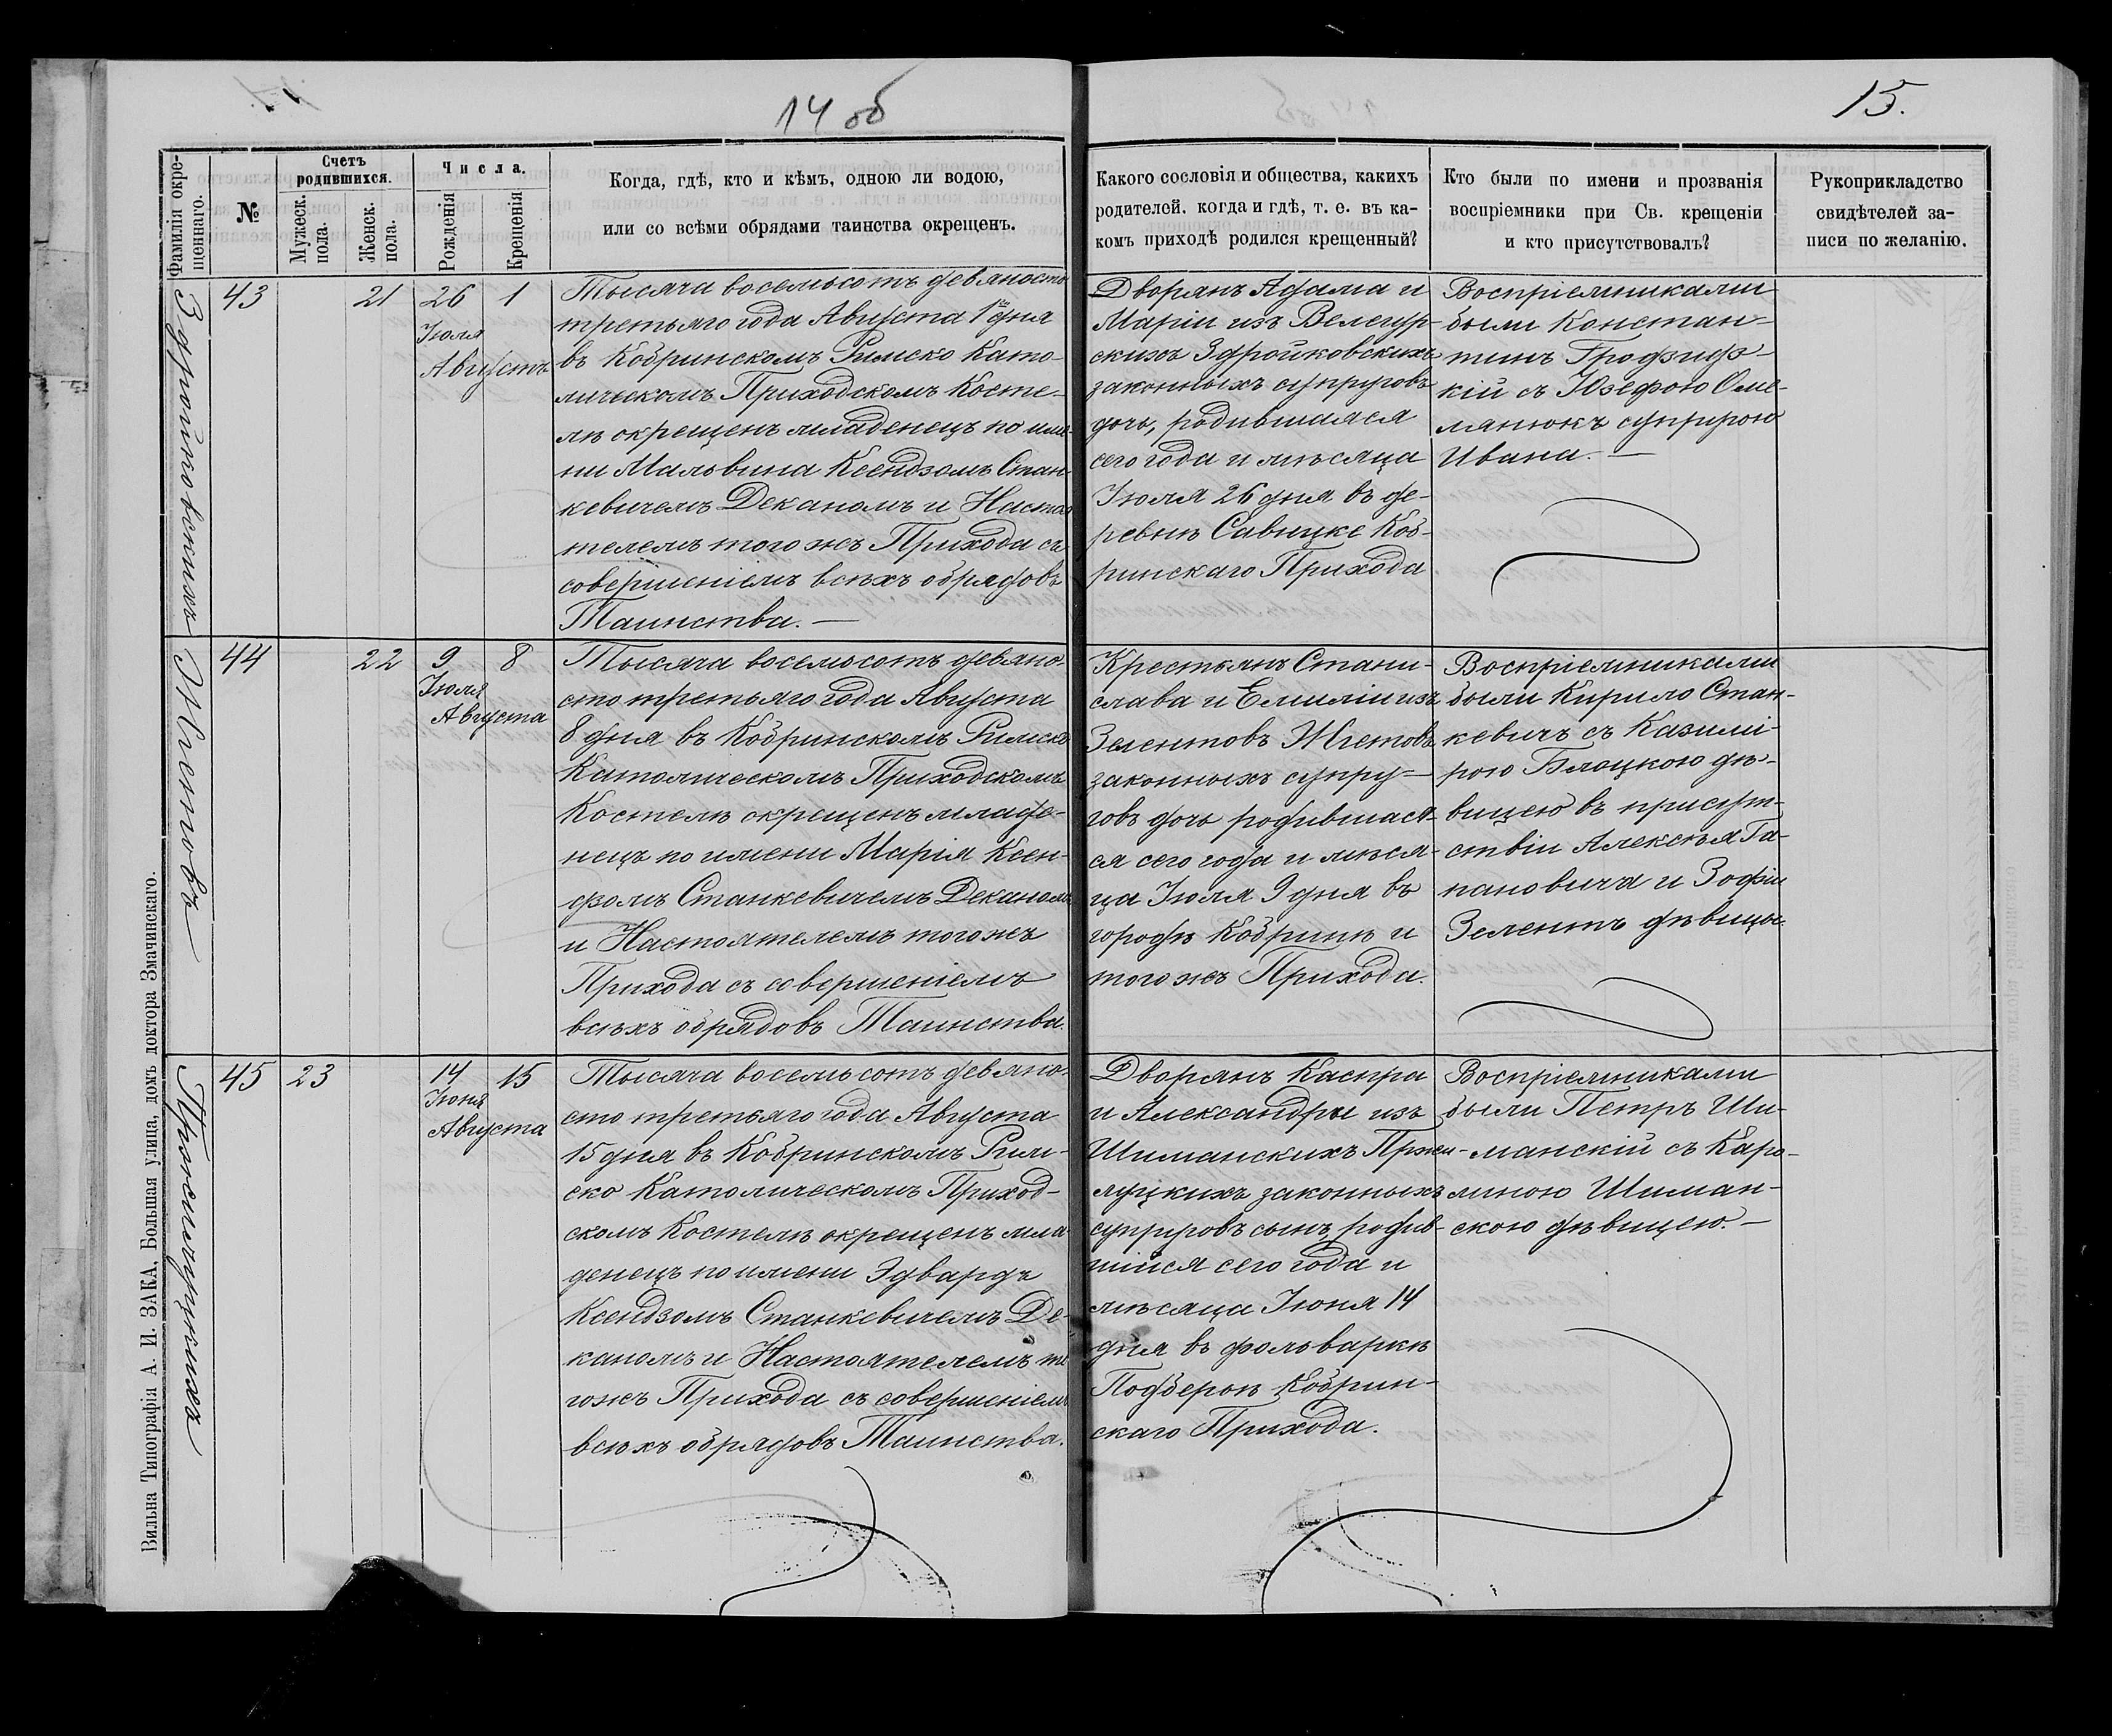 14 об
15.
Фамилія окре-
щеннаго.
№
Счетъ
родившихся.
Мужеск.
пола.
Женск.
пола.
Числа.
Рожденія
Крещенія
Когда, гдѣ, кто и кѣмъ, одною ли водою,
или со всѣми обрядами таинства окрещенъ.
Какого сословія и общества, какихъ
родителей. когда и гдѣ, т. е. въ ка-
комъ приходѣ родился крещенный?
Кто были по имени и прозванія
воспріемники при Св. крещеніи
и кто присутствовалъ?
Рукоприкладство
свидѣтелей за-
писи по желанію.
Здройковскихъ
43
21
26
1
Іюля
Августъ
Тысяча восемьсотъ девяносто
третьяго года Августа 1го дня
въ Кобринскомъ Римско Като-
лическомъ Приходскомъ Косте-
лѣ окрещенъ младенецъ по име-
ни Мальвина Ксендзомъ Стан-
кевичемъ Деканомъ и Настоя
телемъ того жъ Прихода съ
совершеніемъ всѣхъ обрядовъ
Таинства. —
Дворянъ Адама и
Маріи изъ Велегур-
скихъ Здройковскихъ
законныхъ супруговъ
дочь, родившаяся
сего года и мѣсяца
Іюля 26 дня въ де-
ревнѣ Савицке Коб-
ринскаго Прихода
Воспріемниками
были Констан-
тинъ
кій съ Юзефою Оме-
лянюкъ супругою
Ивана. —
Жгетовъ
44
22
9
8
Іюля
Августа
Тысяча восемьсотъ девяно-
сто третьяго года Августа
8 дня въ Кобринскомъ Римско
Католическомъ Приходскомъ
Костелѣ окрещенъ младе-
нецъ по имени Марія Ксен-
дзомъ Станкевичемъ Деканомъ
и Настоятелемъ того жъ
Прихода съ совершеніемъ
всѣхъ обрядовъ Таинства.
Крестьянъ Стани-
слава и Емиліи изъ
Зелентовъ Жгетовъ
законныхъ супру-
говъ дочь родившая-
ся сего года и мѣся-
ца Іюля 9 дня въ
городѣ Кобринѣ и
того жъ Прихода.
Воспріемниками
были Кирило Стан-
кевичъ съ Казими-
рою Блоцкою дѣ-
вицею въ присут-
ствіи Алексѣя Га-
пановича и Зофіи
Зелентъ дѣвицы.
Пржелуцкихъ
45
23
14
15
Іюня
Августа
Тысяча восемьсотъ девяно-
сто третьяго года Августа
15 дня въ Кобринскомъ Рим-
ско Католическомъ Приход-
скомъ Костелѣ окрещенъ мла
денецъ по имени Эдвардъ
Ксендзомъ Станкевичемъ Де-
каномъ и Настоятелемъ то
гожъ Прихода съ совершеніемъ
всѣхъ обрядовъ Таинства.
Дворянъ Каспра
и Александры изъ
Шиманскихъ Прже-
луцкихъ законныхъ
супруговъ сынъ, родив-
шійся сего года и
мѣсяца Іюня 14
дня въ фольваркѣ
Кобрин-
скаго Прихода.
Воспріемниками
были Петръ Ши-
манскій съ Каро-
линою Шиман-
скою дѣвицею. —
Вильна Типографія А. И. ЗАКА, Большая улица, домъ доктора Змачинскаго.